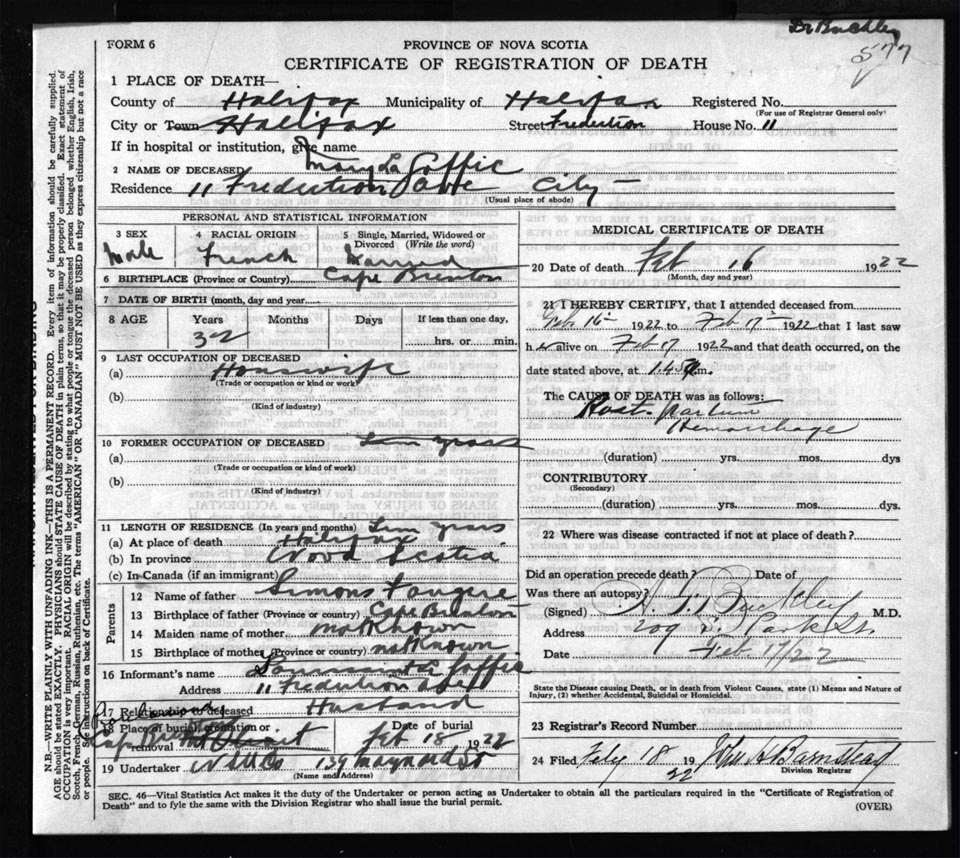 Dr Buckley
577
FORM 6
PROVINCE OF NOVA SCOTIA
CERTIFICATE OF REGISTRATION OF DEATH
1 PLACE OF DEATH—
County of Halifax Municipality of Halifax Registered No.
(For use of Registrar General only)
City or Town Halifax Street Fredertion House No. 11
If in hospital or institution, give name
2 NAME OF DECEASED Mary La Goffic
Residence 11 Fredertion City —
(Usual place of abode)
PERSONAL AND STATISTICAL INFORMATION
3 SEX
4 RACIAL ORIGIN
5 Single, Married, Widowed or Divorced (Write the word)
Male French Married
6 BIRTHPLACE (Province or Country) Cape Breton
7 DATE OF BIRTH (month, day and year)
8 AGE Years Months Days If less than one day,
32 hrs. or min.
9 LAST OCCUPATION OF DECEASED
(a) Housewife
(Trade or occupation or kind or work)
(b)
(Kind of industry)
10 FORMER OCCUPATION OF DECEASED years
(a)
(Trade or occupation or kind of work)
(b)
(Kind of industry)
11 LENGTH OF RESIDENCE (In years and months) years
(a) At place of death Halifax
(b) In province Nova Scotia
(c) In Canada (if an immigrant)
Parents
12 Name of father Simons Fougere
13 Birthplace of father (Province or country) Cape Breton
14 Maiden name of mother not Known
15 Birthplace of mother (Province or country) not Known
16 Informant's name Goffic
Address 11 Fredertion
17 Relationship to deceased Husband
18 Place of burial, cremation or removal Cape Breton Date of burial Feb 18 1922
19 Undertaker 139 Maynard St
(Name and Address)
MEDICAL CERTIFICATE OF DEATH
20 Date of death Feb 16 1922
(Month, day and year)
21 I HEREBY CERTIFY, that I attended deceased from
Feb 16 1922 to Feb 17 1922 that I last saw
her alive on Feb 17 1922 and that death occurred, on the
date stated above, at 1.45 a.m.
The CAUSE OF DEATH was as follows:
Post Partum
Hemorrhage
(duration) yrs. mos. dys
CONTRIBUTORY
(Secondary)
(duration) yrs. mos. dys.
22 Where was disease contracted if not at place of death?
Did an operation precede death? Date of
Was there an autopsy?
(Signed) H. G. Buckley M.D.
Address 209 S. Park St.
Date Feb. 17/22
State the Disease causing Death, or in death from Violent Causes, state (1) Means and Nature of
Injury, (2) whether Accidental, Suicidal or Homicidal.
23 Registrar's Record Number
24 Filed Feby 18 1922 John A Barnstead
Division Registrar
SEC. 46—Vital Statistics Act makes it the duty of the Undertaker or person acting as Undertaker to obtain all the particulars required in the "Certificate of Registration of
Death" and to fyle the same with the Division Registrar who shall issue the burial permit.
(OVER)
N.B.—WRITE PLAINLY WITH UNFADING INK—THIS IS A PERMANENT RECORD. Every item of information should be carefully supplied.
AGE should be stated EXACTLY. PHYSICIANS should STATE CAUSE OF DEATH in plain terms, so that it may be properly classified. Exact statement of
OCCUPATION is very important. RACIAL ORIGIN will be described by stating to what people or tongue the deceased person belonged whether English, Irish,
Scotch, French, German, Russian, Ruthenian, etc. The terms "AMERICAN" OR "CANADIAN" MUST NOT BE USED as they express citizenship but not a race
or people. See instructions on back of Certificate.